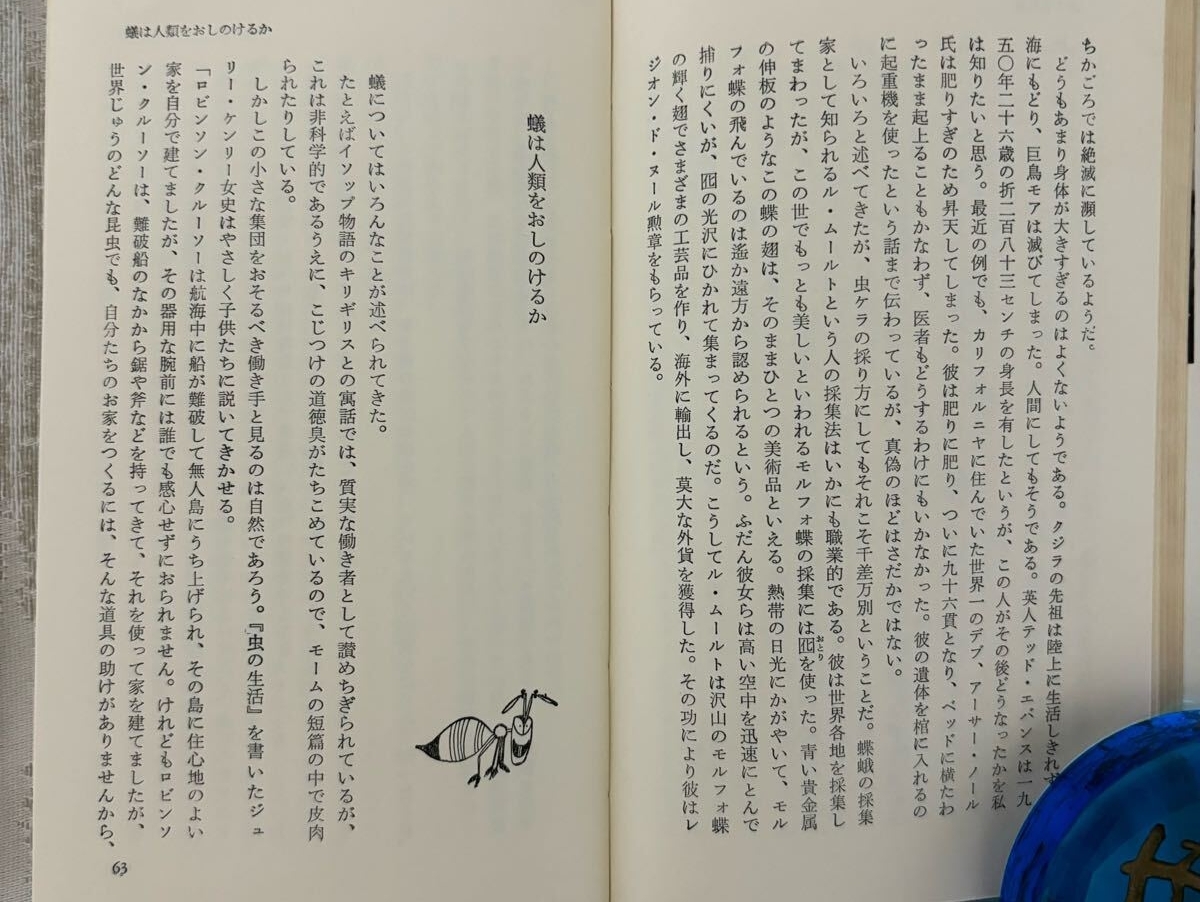 ちかごろでは絶滅に瀕しているようだ。
どうもあまり身体が大きすぎるのはよくないようである。クジラの先祖は陸上に生活しきれず
海にもどり、巨鳥モアは滅びてしまった。人間にしてもそうである。英人テッド・エバンスは一九
五〇年二十六歳の折二百八十三センチの身長を有したというが、この人がその後どうなったかを私
は知りたいと思う。最近の例でも、カリフォルニヤに住んでいた世界一のデブ、アーサー・ノール
氏は肥りすぎのため昇天してしまった。彼は肥りに肥り、ついに九十六貫となり、ベッドに横たわ
ったまま起上ることもかなわず、医者もどうするわけにもいかなかった。彼の遺体を棺に入れるの
に起重機を使ったという話まで伝わっているが、真偽のほどはさだかではない。
いろいろと述べてきたが、虫ケラの採り方にしてもそれこそ千差万別ということだ。蝶蛾の採集
家として知られるル・ムールトという人の採集法はいかにも職業的である。彼は世界各地を採集し
てまわったが、この世でもっとも美しいといわれるモルフォ蝶の採集には囮を使った。青い貴金属
おとり
の伸板のようなこの蝶の翅は、そのままひとつの美術品といえる。熱帯の日光にかがやいて、モル
フォ蝶の飛んでいるのは遙か遠方から認められるという。ふだん彼女らは高い空中を迅速にとんで
捕りにくいが、囮の光沢にひかれて集まってくるのだ。こうしてル・ムールトは沢山のモルフォ蝶
の輝く翅でさまざまの工芸品を作り、海外に輸出し、莫大な外貨を獲得した。その功により彼はレ
ジオン・ド・ヌール勲章をもらっている。
蟻は人類をおしのけるか
蟻は人類をおしのけるか
蟻についてはいろんなことが述べられてきた。
たとえばイソップ物語のキリギリスとの寓話では、質実な働き者として讃めちぎられているが、
これは非科学的であるうえに、こじつけの道徳臭がたちこめているので、モームの短篇の中で皮肉
られたりしている。
しかしこの小さな集団をおそるべき働き手と見るのは自然であろう。『虫の生活』を書いたジュ
リー・ケンリー女史はやさしく子供たちに説いてきかせる。
「ロビンソン・クルーソーは航海中に船が難破して無人島にうち上げられ、その島に住心地のよい
家を自分で建てましたが、その器用な腕前には誰でも感心せずにおられません。けれどもロビンソ
ン・クルーソーは、難破船のなかから鋸や斧などを持ってきて、それを使って家を建てましたが、
世界じゅうのどんな昆虫でも、自分たちのお家をつくるには、そんな道具の助けがありませんから、
63